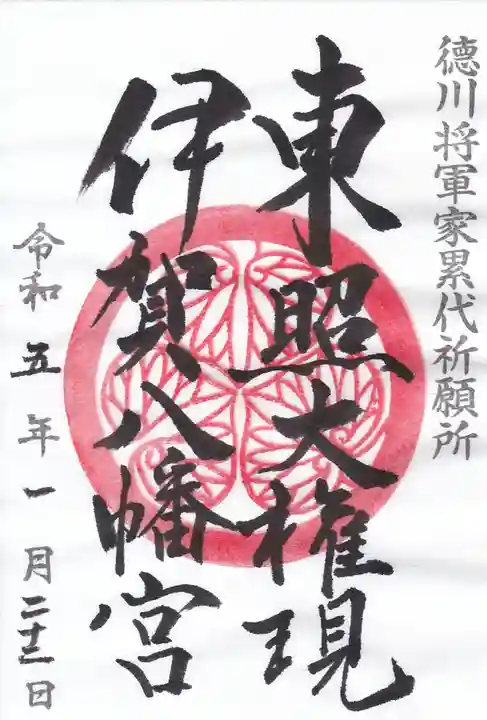 徳川将軍家累代祈願所
東照大権現
伊賀八幡宮
令和五年一月二十二日